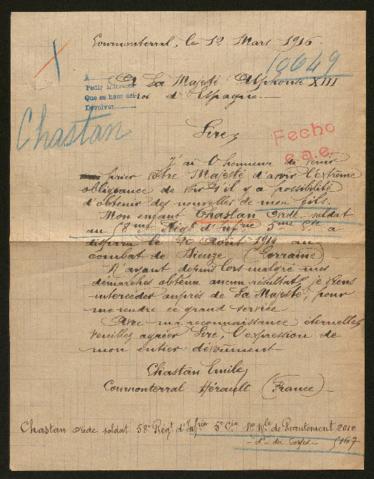 Cournonterral, le 12 Mars 1916
10649
A Sa Majesté Alphonse XIII
Roi d'Espagne
A
Que se haga
Devolver
Chastan
Sire,
Fecho
J'ai l'honneur de venir
prier Votre Majesté d'avoir l'extrême
obligeance de voir s'il y a possibilité
d'obtenir des nouvelles de mon fils.
Mon enfant Chastan soldat
au 58me Régt d'Infrie 5me Cie a
disparu le Août 1914 au
combat de Dieuze (Lorraine)
N'ayant depuis lors malgré mes
démarches obtenu aucun résultat, je viens
intercéder auprès de Sa Majesté, pour
me rendre ce grand service
Avec ma reconnaissance éternelle,
veuillez agréer Sire, l'expression de
mon entier dévouement
Chastan Emile
Cournonterral Hérault (France)
Chastan soldat 58e Régt d'Infrie 5e Cie No Mle de Recrutement 2010
d° du Corps